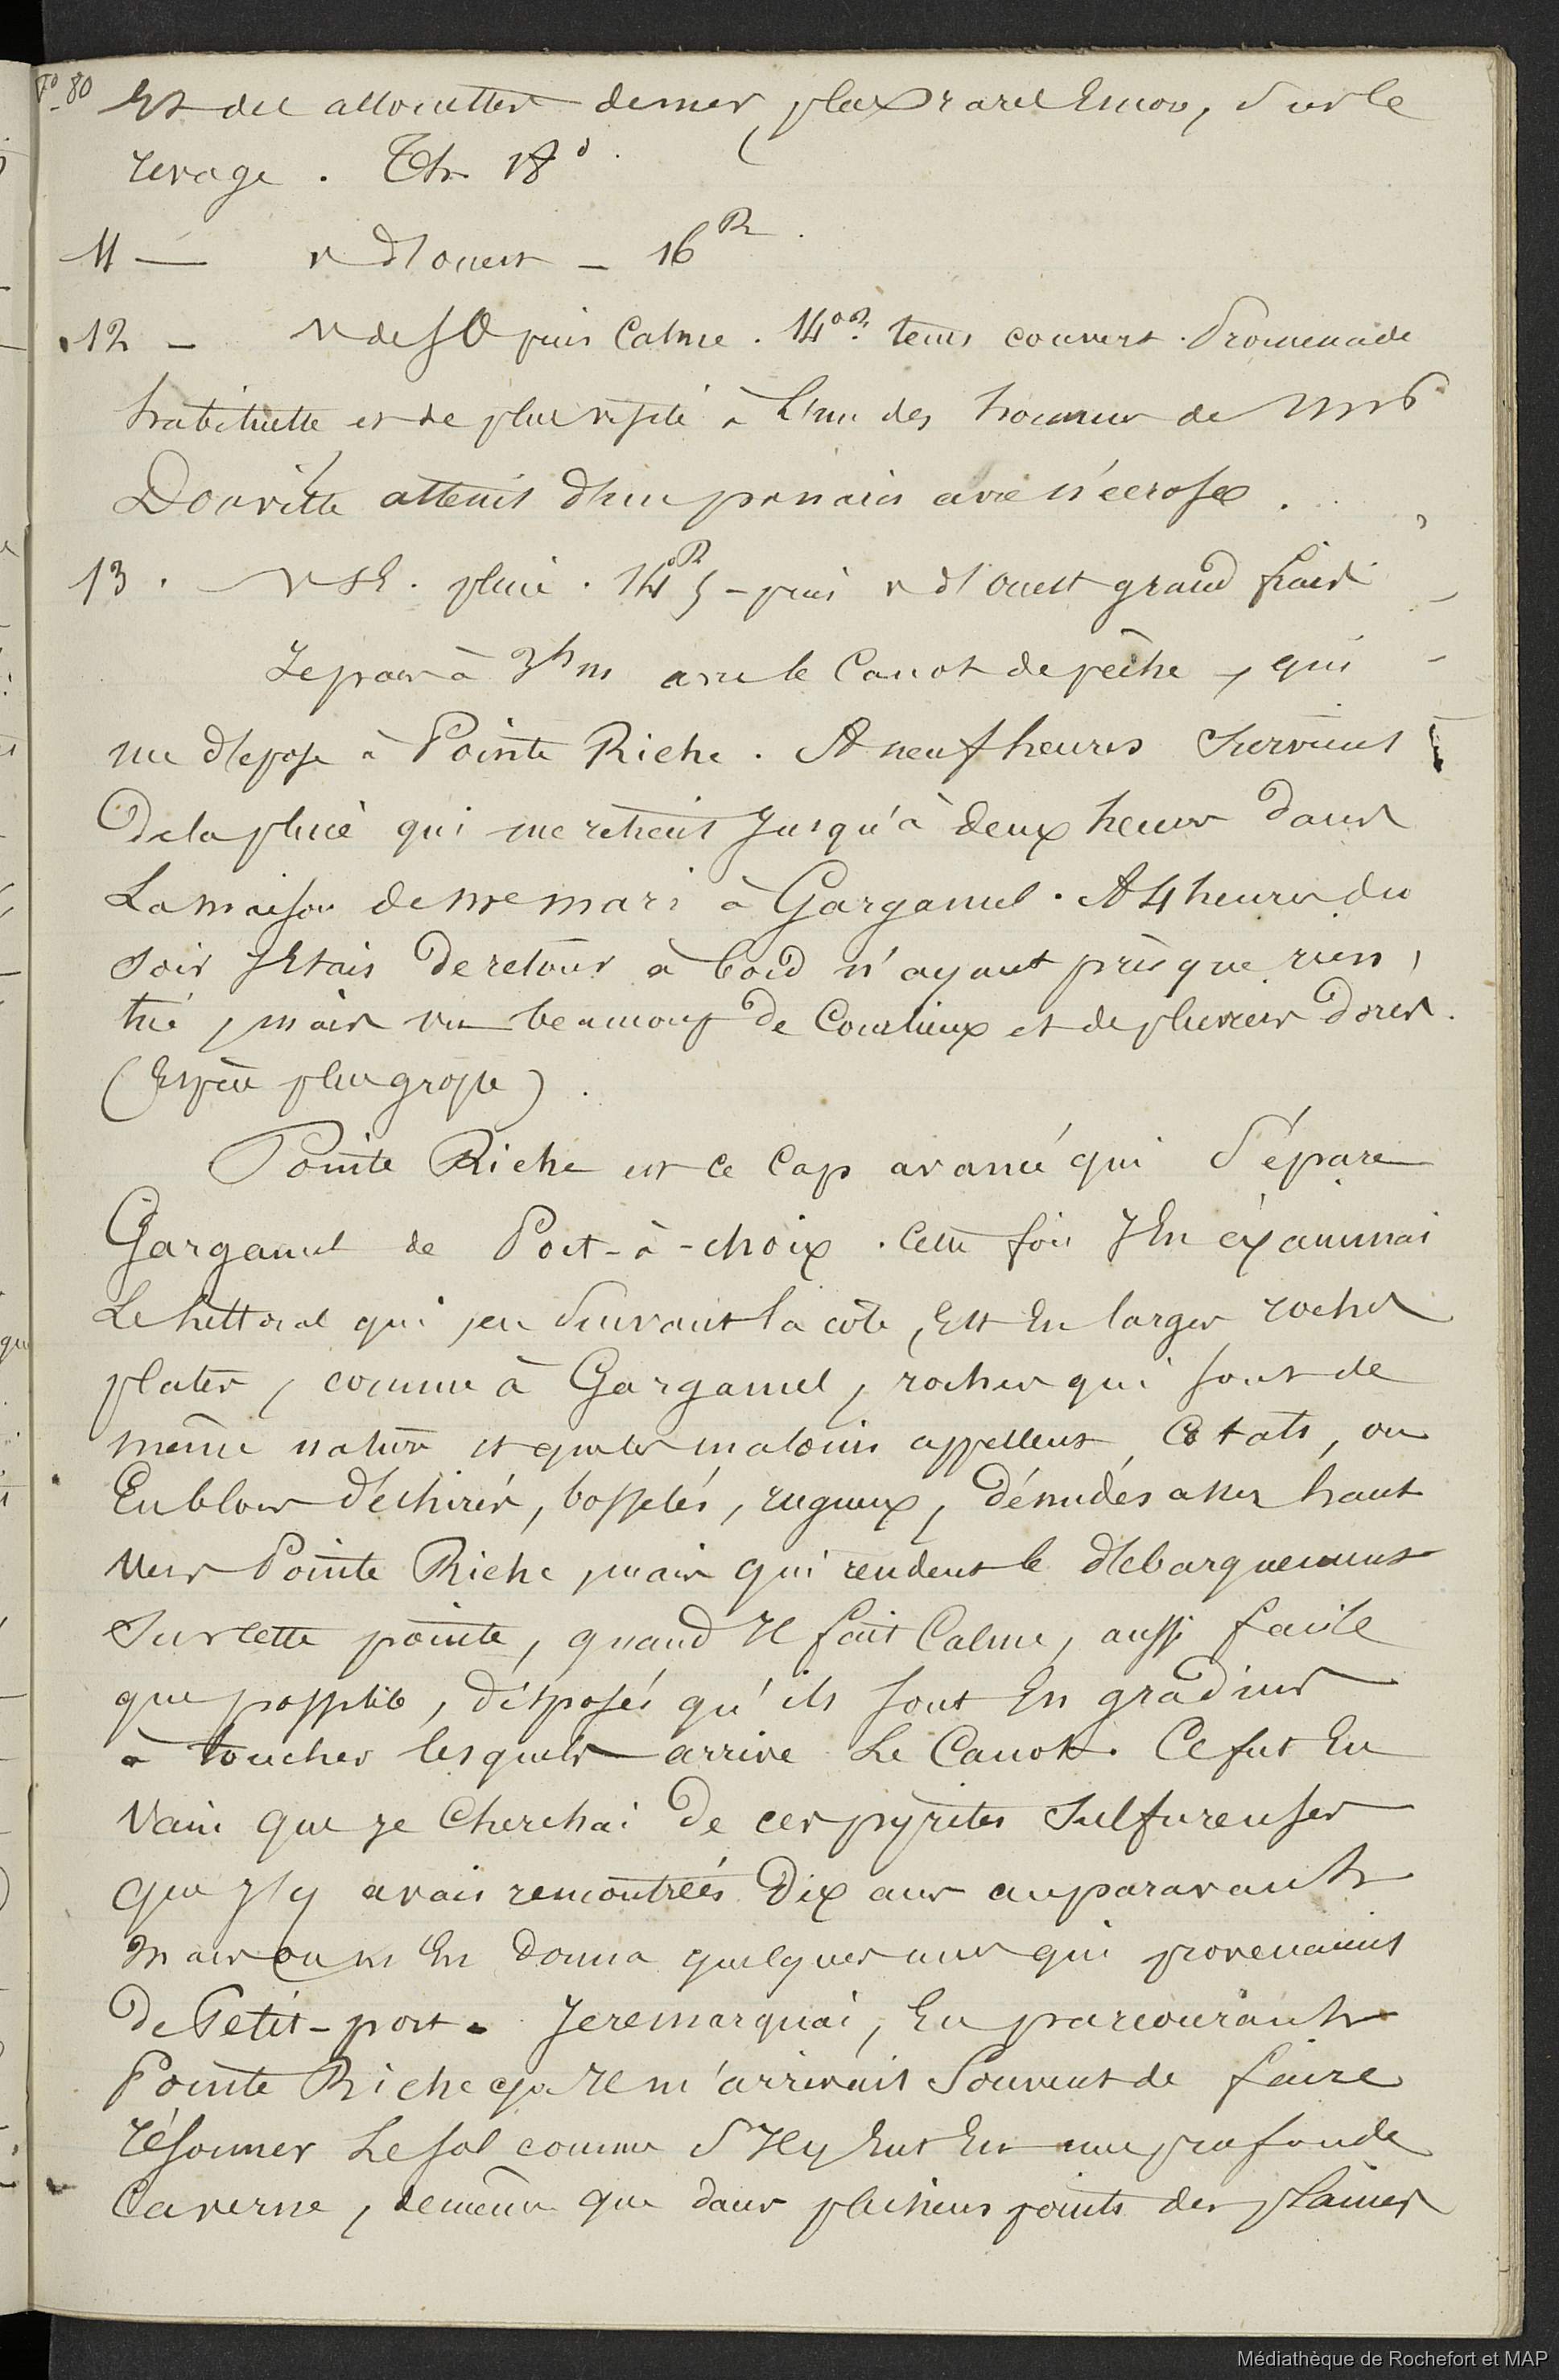 Fo 80
Et des allouettes de mer, plus rares Encor, Sur le
rivage. Th 18°
11 — v d'ouest — 16 R
12 — v de SO puis Calme. 14° R. tems couvert. Promenade
habituelle et de plus visite à l'un des hommes de Mr
Douville atteint d'un panaris avec nécrose.
13. v SE. pluie. 14° R 5 - puis v d'ouest grand frais
Je pars à 3h m avec le Canot de pêche, qui
me dépose à Pointe Riche. A neuf heures Survient
De la pluie qui me retient Jusqu'à deux heures dans
La maison de Mr mari à Gargamel. A 4 heures du
Soir J'Etais De retour à bord n'ayant près que rien
tué, mais vu beaucoup de Courlieux et de pluviers Dorés.
(Espèce plus grosse).
Pointe Riche est ce Cap avancé qui Sépare
Gargamel de Port-à-choix. Cette fois J'En éxaminai
Le littoral qui, en Suivant la côte, Est En larges rochers
plates, comme à Gargamel, rochers qui sont de
même nature et que les malouins appellent, ou
En blocs déchirés, bosselés, rugueux, dénudés assez haut
Vers Pointe Riche, mais qui rendent le débarquement
Sur cette pointe, quand Il fait Calme, aussi facile
que possible, disposés qu'ils sont En gradins
à toucher lesquels arrive Le Canot. Ce fut En
Vain que je Cherchai De ces pyrites Sulfureuses
que J'y avais rencontrées Dix ans auparavant
Mais on m'En Donna quelques unes qui provenaient
De Petit-port. Je remarquai, En parcourant
Pointe Riche qu'Il m'arrivait Souvent de faire
résonner Le sol comme S'Il y Eut Eu une profonde
Caverne, de même que dans plusieurs points des plaines
Médiathèque de Rochefort et MAP